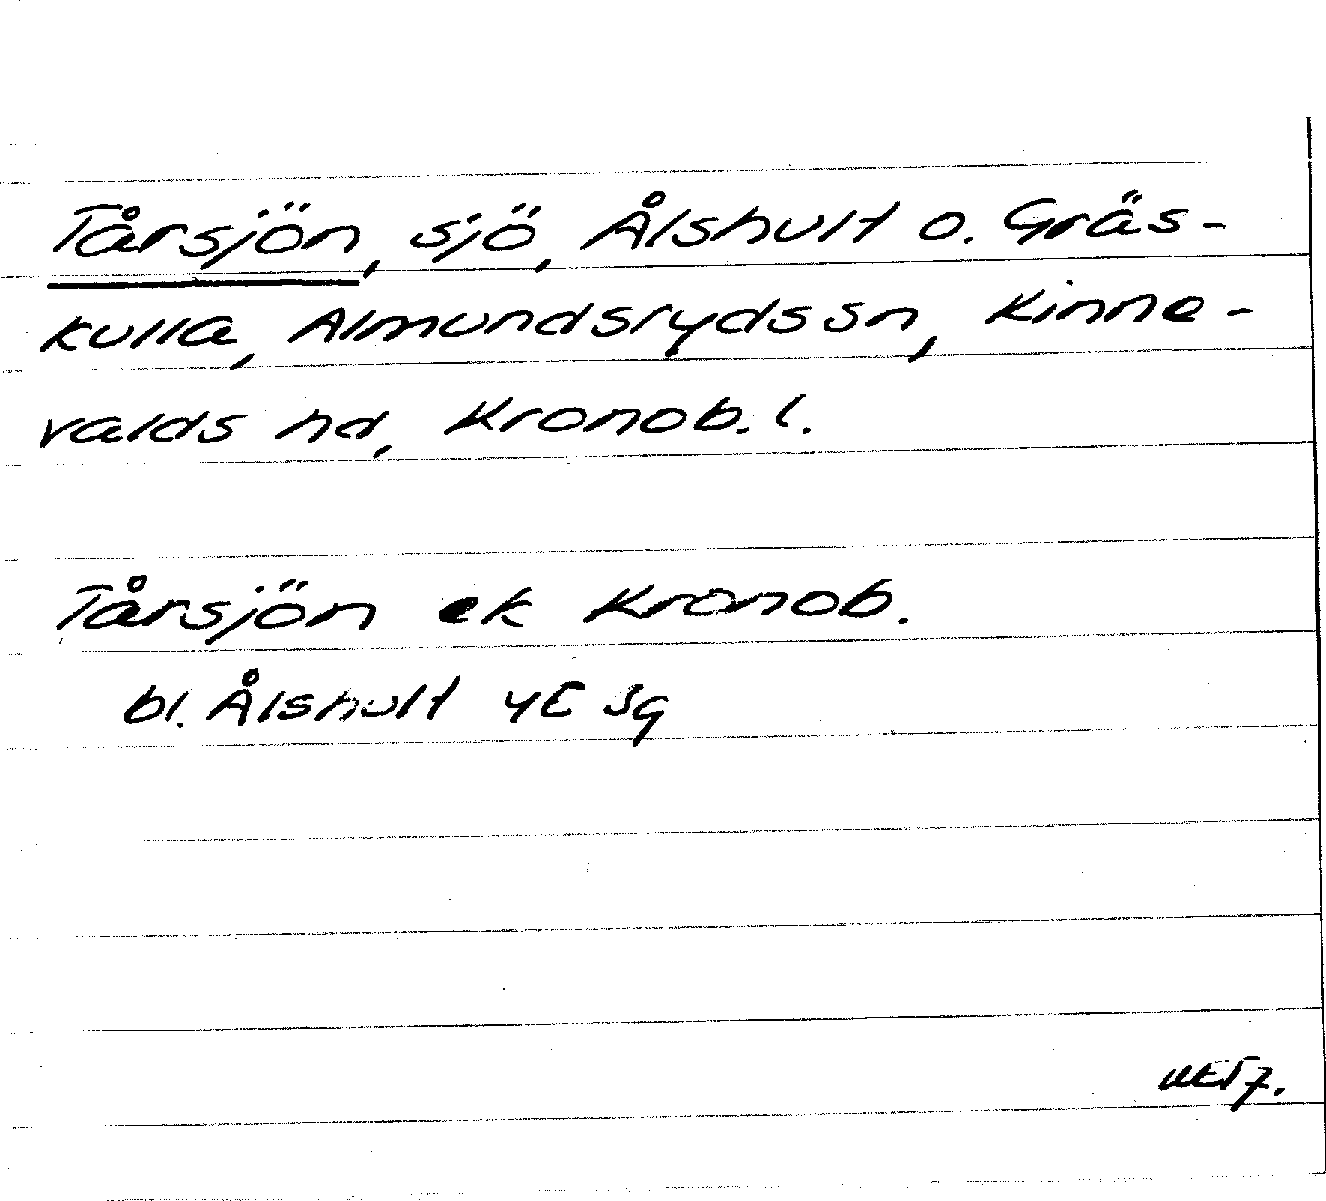 Tårsjön, sjö, Ålshult o. Gräs-
kulla, Almundsryds sn, Kinne-
valds hd, Kronob. l.
Tårsjön ek Kronob.
bl. Ålshult 4E Sg